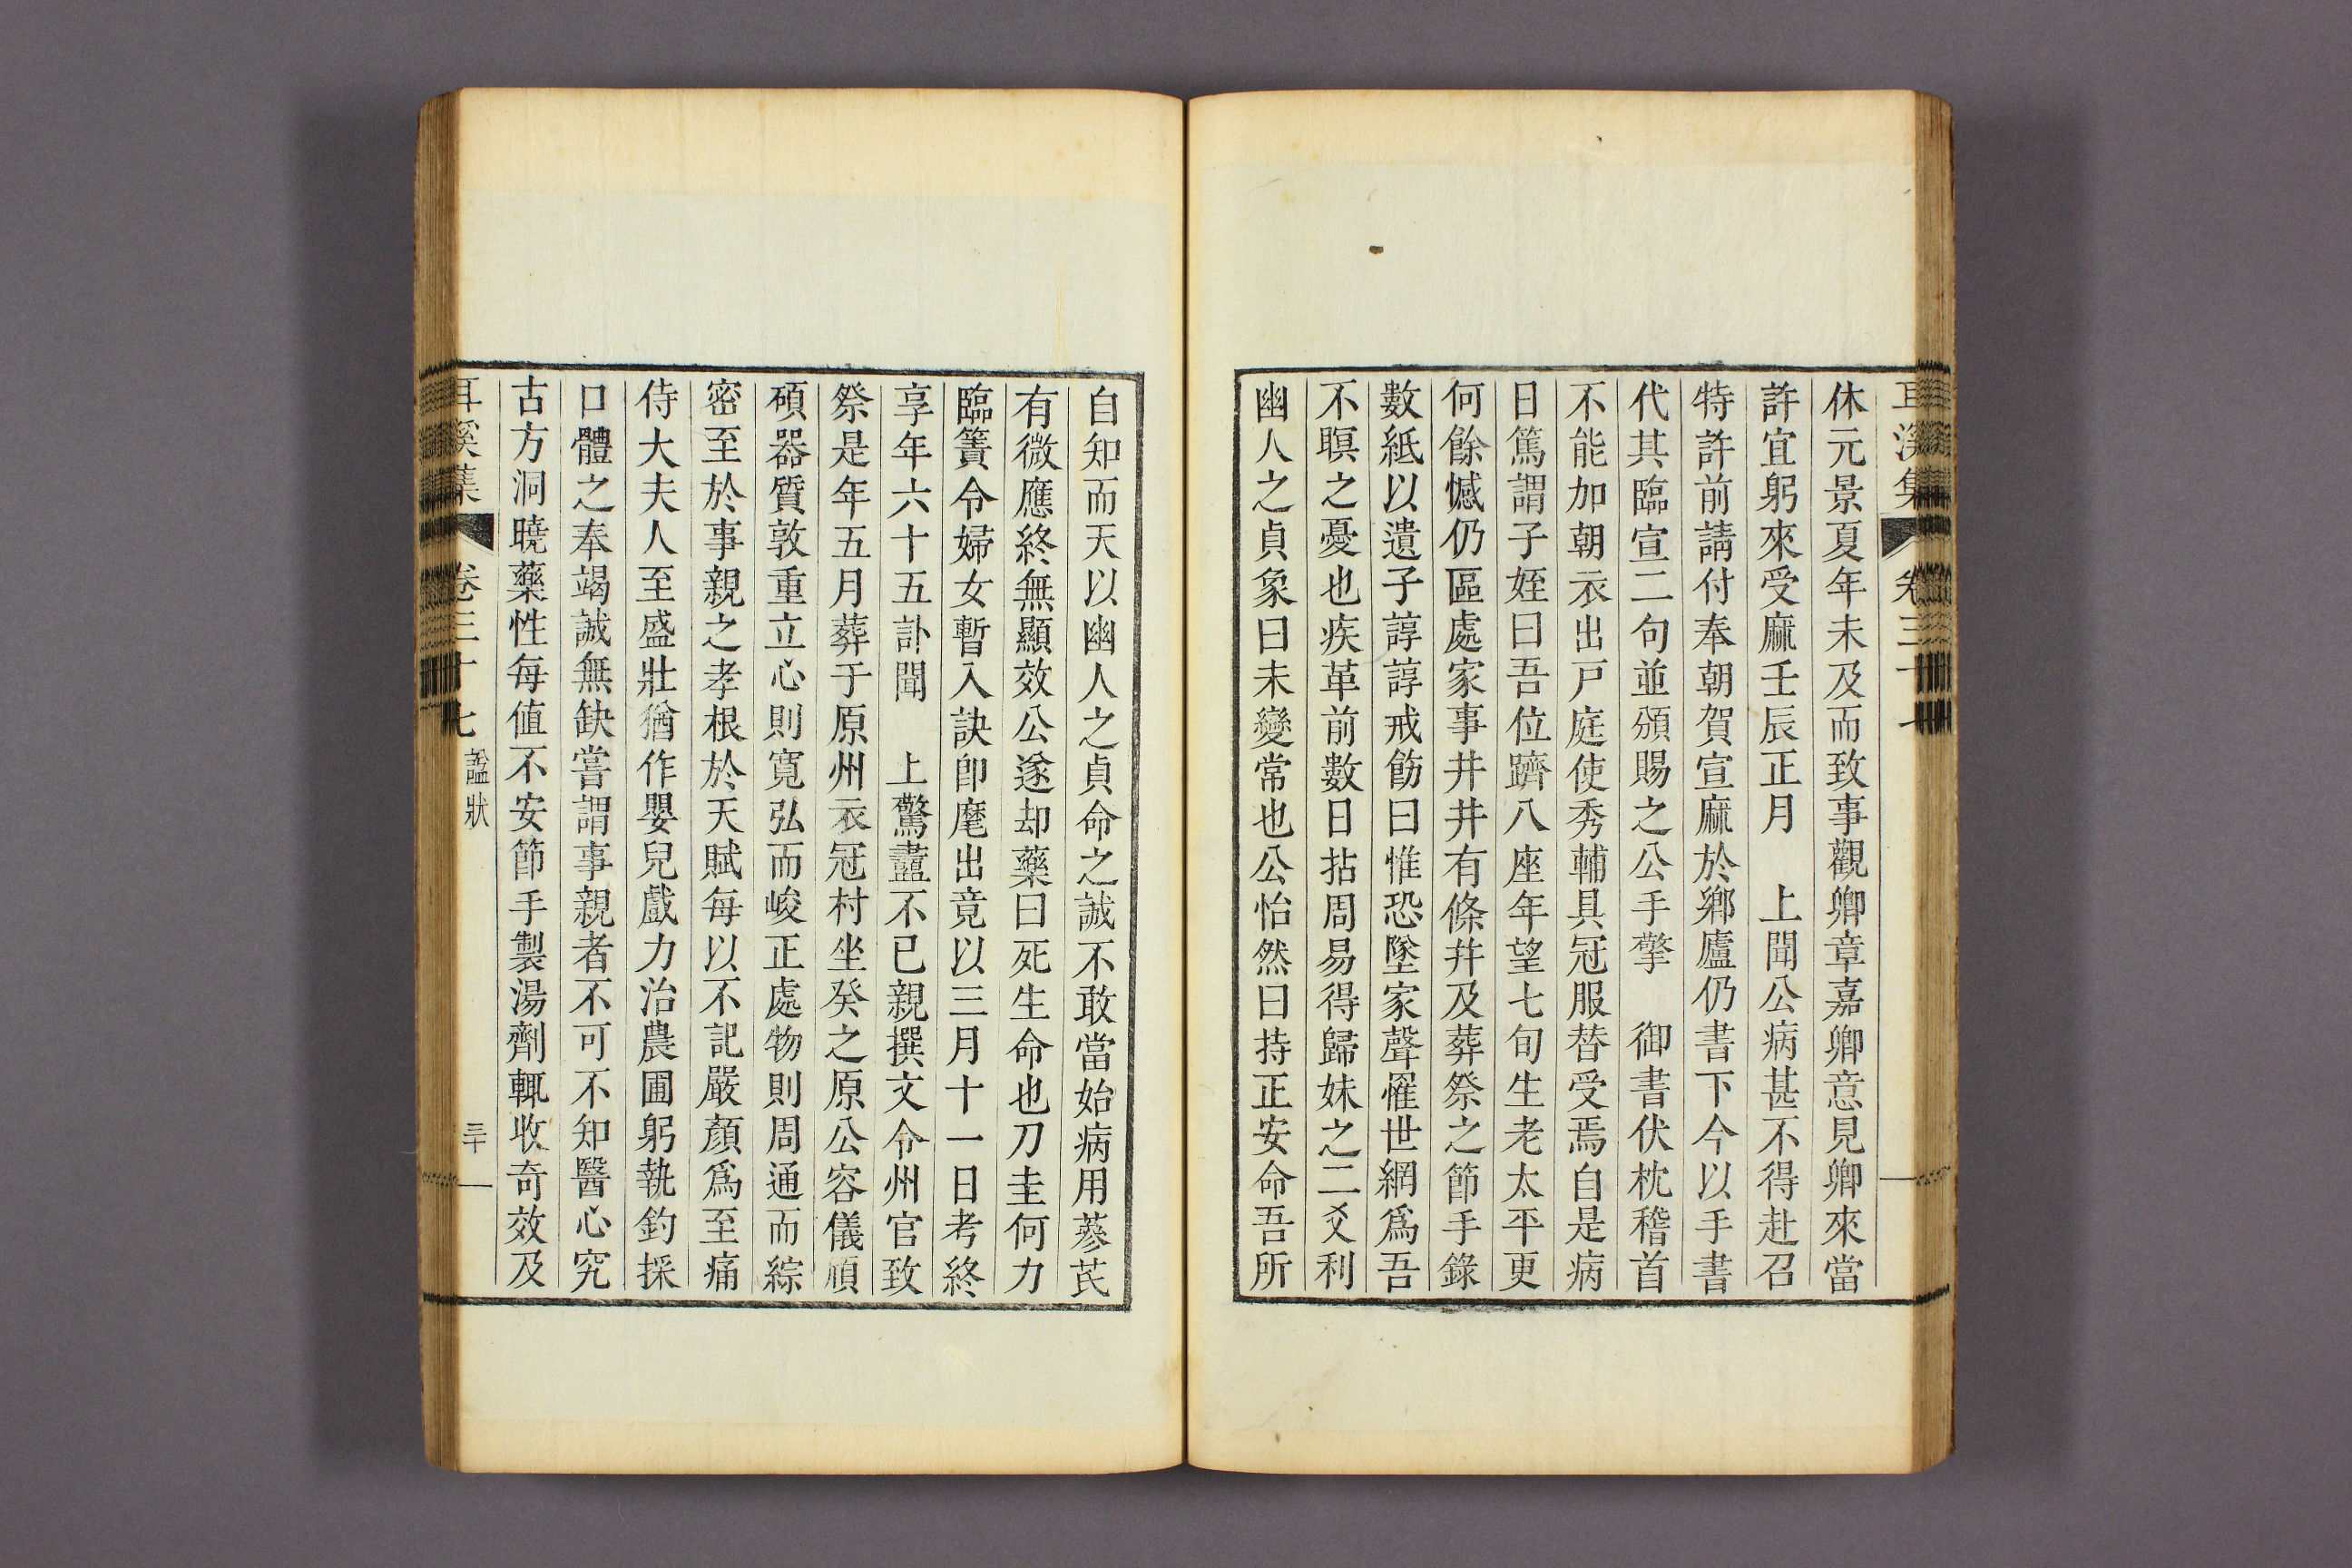 休元景夏年未及而致事觀卿章嘉卿意見卿來當
許宜躬來受麻壬辰正月　上聞公病甚不得赴召
特許前請付奉朝賀宣麻於鄉廬仍書下今以手書
代其臨宣二句並頒賜之公手擎　御書伏枕稽首
不能加朝衣出戶庭使秀輔具冠服替受焉自是病
日篤謂子姪曰吾位躋八座年望七旬生老太平更
何餘憾仍區處家事井井有條幷及葬祭之節手錄
數紙以遺子諄諄戒飭曰惟恐墜家聲罹世網爲吾
不瞑之憂也疾革前數日拈周易得歸妹之二爻利
幽人之貞象曰未變常也公怡然曰持正安命吾所
自知而天以幽人之貞命之誠不敢當始病用蔘芪
有微應終無顯效公遂却藥曰死生命也刀圭何力
臨簀令婦女暫入訣卽麾出竟以三月十一日考終
享年六十五訃聞　上驚衋不已親撰文令州官致
祭是年五月葬于原州衣冠村坐癸之原公容儀頎
碩器質敦重立心則寬弘而峻正處物則周通而綜
密至於事親之孝根於天賦每以不記嚴顏爲至痛
侍大夫人至盛壯猶作嬰兒戲力治農圃躬執釣採
口體之奉竭誠無缺嘗謂事親者不可不知醫心究
古方洞曉藥性每值不安節手製湯劑輒收奇效及
耳溪集　卷三十七　諡狀　三十